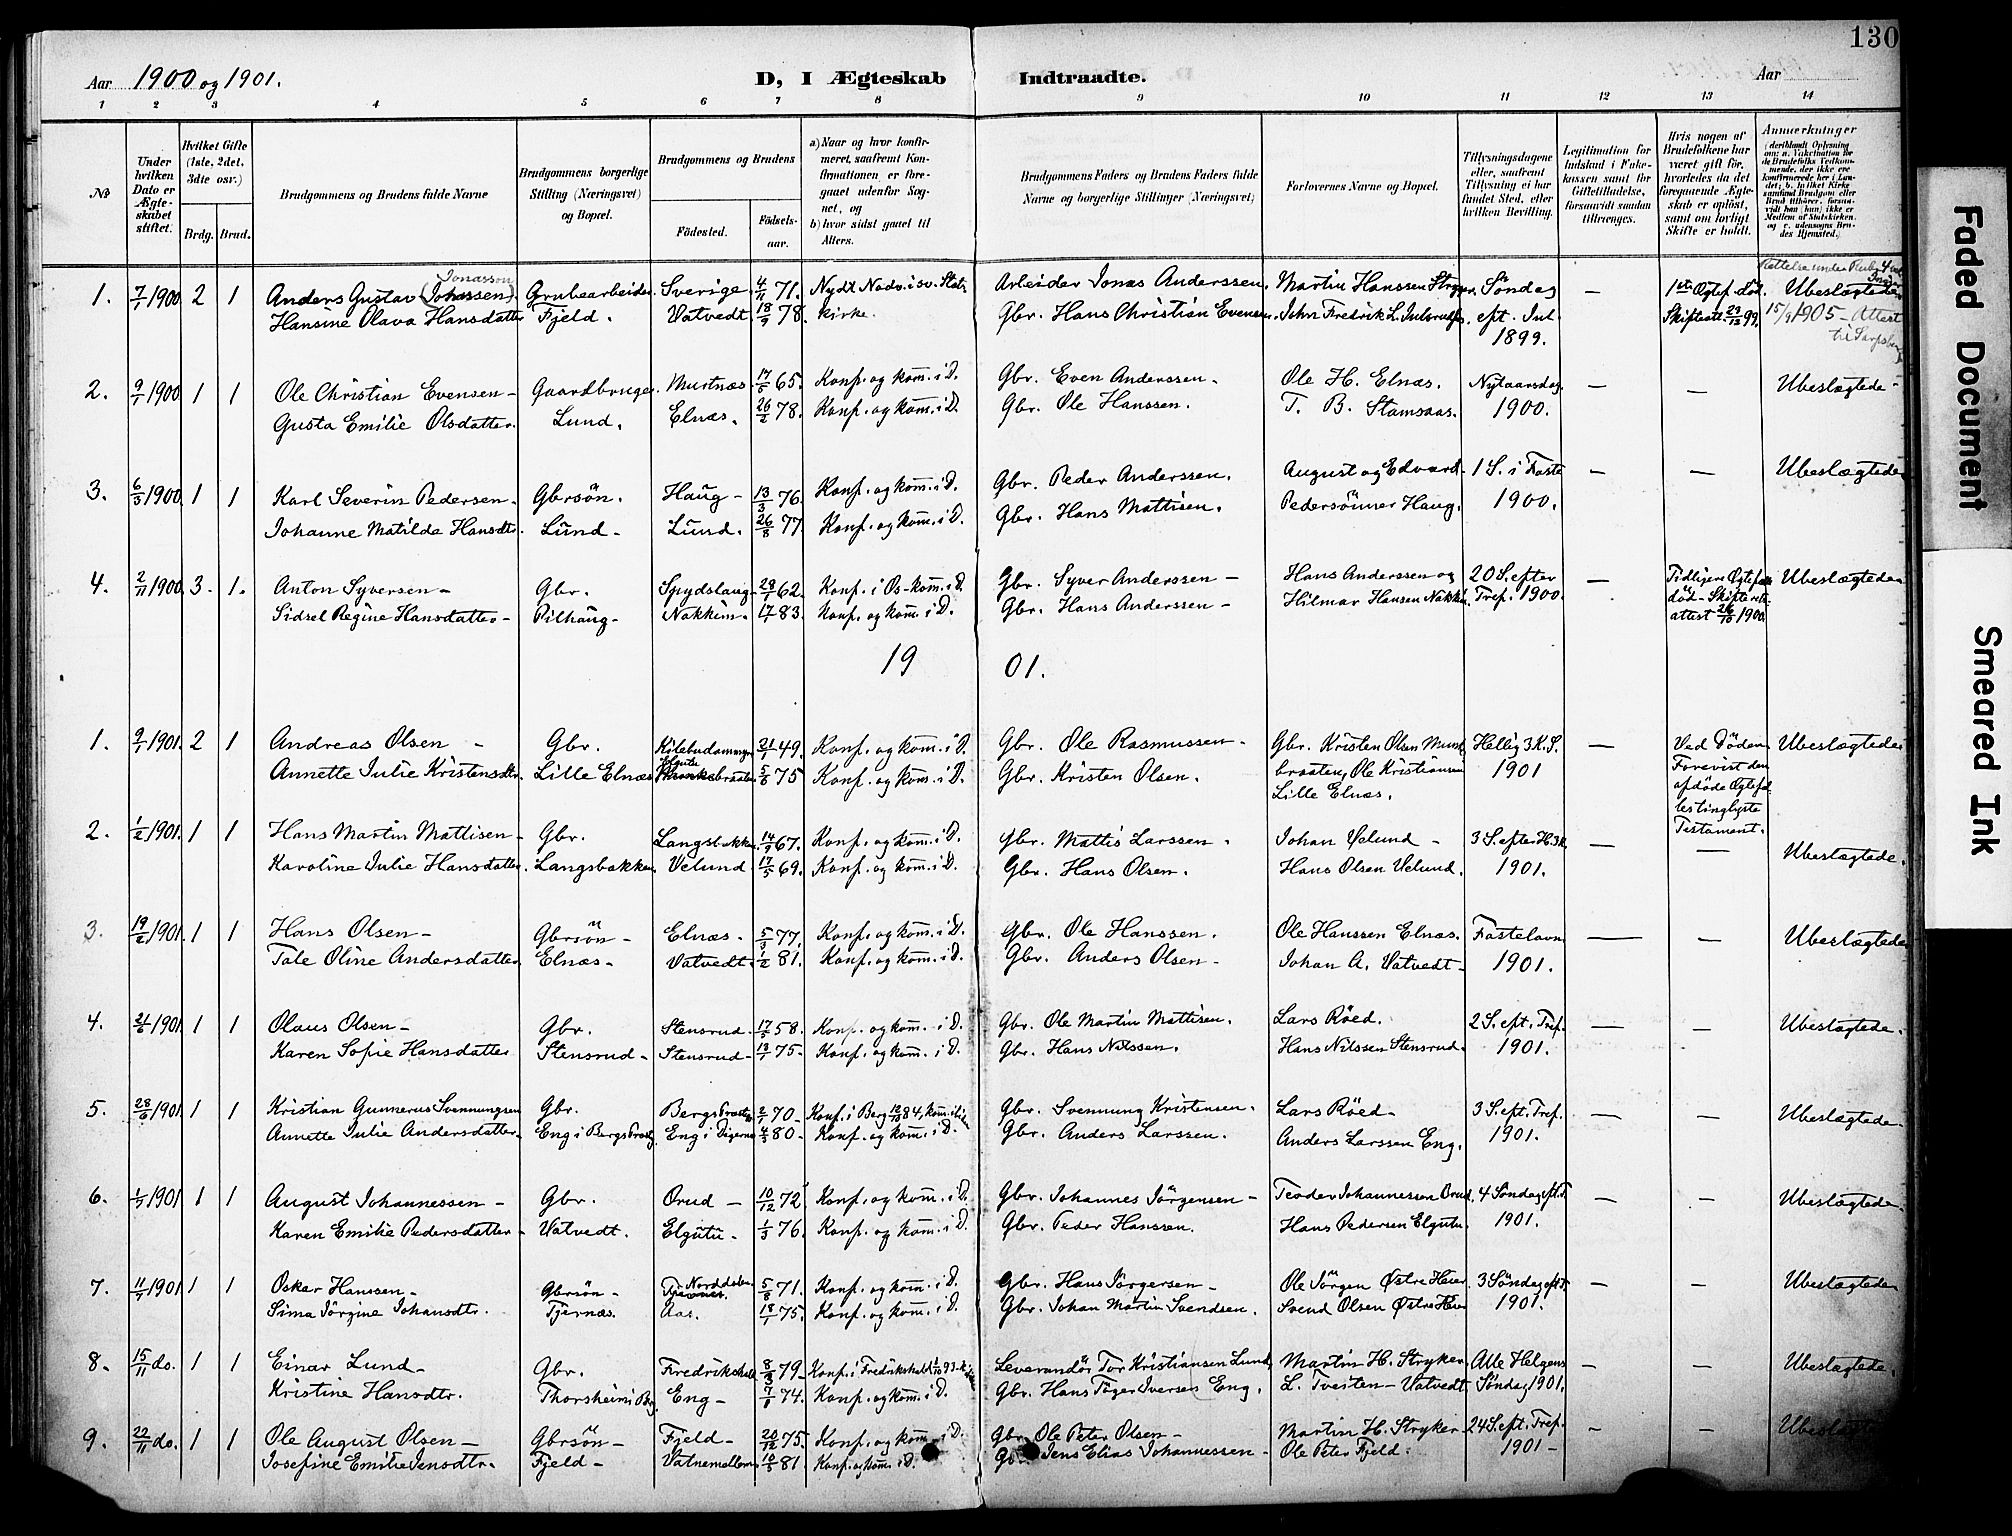 130
Aar 1900 og 1901. D, I Ægteskab Indtraadte. Aar
1 2 3 4 5 6 7 8 9 10 11 12 13 14
No
Under hvilken Dato er Ægteskabet stiftet.
Hvilket Gifte (1ste, 2det, 3die osv.)
Brdg. Brud.
Brudgommens og Brudens fulde Navne
Brudgommens borgerlige Stilling (Næringsvei) og Bopæl.
Brudgommens og Brudens
Födested. Födselsaar.
a) Naar og hvor konfirmeret, saafremt Konfirmationen er foregaaet udenfor Sognet, og
b) hvor sidst gaaet til Alters.
Brudgommens Faders og Brudens Faders fulde Navne og borgerlige Stillinger (Næringsvei)
Forlovernes Navne og Bopæl.
Tillysningsdagene eller, saafremt Tillysning ei har fundet Sted, efter hvilken Bevilling.
Legitimation for Indskud i Enkekassen samt for Giftetilladelse, forsaavidt saadan tiltrænges.
Hvis nogen af Brudefolkene har været gift för, hvorledes da det foregaaende Ægteskab er oplöst, samt om lovligt Skifte er holdt.
Anmærkninger
1. 7/1 1900 2 1 Anders Gustav (Johansen) Jonasson Grubearbeider Sverige 4/11 71. Nydt Nadv. i sv. Stats Arbeider Jonas Anderssen. Martin Hanssen Stryger, Söndag — 1ste Ægtef. död. Ubeslægtede
Hansine Olava Hansdatter Fjeld. Vatvedt 18/9 78. kirke. Gbr. Hans Christian Evensen. John Fredrik L. eft. Jul 1899. Skifteatt. 29/12 99. 15/9 1905 - Attest til Sarpsborg
2. 9/1 1900 1 1 Ole Christian Evensen - Gaardbruger Murtnæs 17/5 65. Konf. og kom. i D. Gbr. Even Anderssen. Ole H. Elnæs. Nytaarsdag — — Ubeslægtede -
Gusta Emilie Olsdatter. Lund. Elnæs. 26/2 78. Konf. og kom. i D. Gbr. Ole Hanssen. T. B. Stamsaas. 1900.
3. 6/3 1900 1 1 Karl Severin Pedersen - Gbrsön. Haug - 13/3 76. Konf. og kom. i D. Gbr. Peder Anderssen. August og Edvard 1 S. i Faste — — Ubeslægtede
Johanne Matilda Hansdtr. Lund - Lund. 26/8 77. Konf. og kom. i D. Gbr. Hans Mattisen. Pedersönner Haug. 1900.
4. 2/11 1900 3. 1. Anton Syversen - Gbr. Spydslaug 28/1 62. Konf. i Os - kom. i D. Gbr. Syver Anderssen - Hans Anderssen og 20 S. efter — Tidligere Ægtefælle Ubeslægtede
Sidsel Regine Hansdatter - Pilhaug - Nakkim - 17/1 83. Konf. og kom. i D. Gbr. Hans Anderssen - Hilmar Hansen Nakkim Tref. 1900. död - Skifterets attest 26/10 1900.
19 01.
1. 9/1 1901. 2 1 Andreas Olsen - Gbr. 21/1 49. Konf. og kom. i D. Gbr. Ole Rasmussen - Gbr. Kristen Olsen Hellig 3 K. S. — Ved Döden. Ubeslægtede
Annette Julie Kristensdtr. Lille Elnæs 5/6 75 Konf. og kom. i D. Gbr. Kristen Olsen. braaten, Ole Kristiansen 1901 Forevist den
Lille Elnæs. afdöde Ægtefæl
les tinglyste Testament.
2. 1/2 1901. 1 1 Hans Martin Mattisen - Gbr. Langsbakken 14/9 67. Konf. og kom. i D. Gbr. Mattis Larssen. Johan Velund - 3 S. efter H. 3 K. — — Ubeslægtede.
Karoline Julie Hansdatter. Langsbakken. Velund 17/5 69. Konf. og kom. i D. Gbr. Hans Olsen. Hans Olsen Velund. 1901.
3. 19/2 1901. 1 1 Hans Olsen - Gbrsön - Elnæs - 5/3 77. Konf. og kom. i D. Gbr. Ole Hanssen. Ole Hanssen Elnæs. Fastelavn — — Ubeslægtede
Tale Oline Andersdatter. Elnæs - Vatvedt 1/2 81. Konf. og kom. i D. Gbr. Anders Olsen - Johan A. Vatvedt - 1901.
4. 21/6 1901 1 1 Olaus Olsen - Gbr. Stensrud. 17/5 58. Konf. og kom. i D. Gbr. Ole Martin Mattisen. Lars Röed. 2 S. eft. Tref. — — Ubeslægtede.
Karen Sofie Hansdatter Stensrud - Stensrud - 13/7 75 - Konf. og kom. i D. Gbr. Hans Nilssen. Hans Nilssen Stensrud. 1901.
5. 28/6 1901 1 1 Kristian Gunnerus Svennungsen Gbr. Bergs Præstg 2/1 70 - Konf. i Berg 12/10 84, Gbr. Svennung Kristensen. Lars Röed - 3 S. eft. Tref. — — Ubeslægtede.
Annette Julie Andersdatter. Eng i Bergs Præstg Eng i Digerne 4/3 80 - Konf. og kom. i D. Gbr. Anders Larssen. Anders Larssen Eng. 1901.
6. 1/7 1901 1 1 August Johannessen - Gbr. Örud - 10/12 72 Konf. og kom. i D. Gbr. Johannes Jörgensen - Teodor Johannessen Örud 4 Söndag eft. T. — — Ubeslægtede.
Karen Emilie Pedersdatter - Vatvedt. Elgutu - 1/3 76. Konf. og kom. i D. Gbr. Peder Hanssen. Hans Pedersen Elgutu. 1901.
7. 11/7 1901 1 1 Oskar Hanssen - Gbrsön - Tjernæs. 5/8 71. Konf. og kom. i D. Gbr. Hans Jörgersen - Ole Jörgen Østre Heier 3 Söndag eft. T. — — Ubeslægtede
Sima Jörgine Johansdtr. Tjernæs. Aas. 18/1 75. Konf. og kom. i D. Gbr. Johan Martin Svendsen. Svend Olsen Østre Heier 1901.
8. 15/11 do. 1 1 Einar Lund - Gbr. Fredrikshald 8/3 79 - Konf. i Fredrikshald 1/10 93 - Leverandör Tor Kristiansen Lund, Martin H. Stryker Alle Helgens — — Ubeslægtede.
Kristine Hansdtr. Thorsheim i Berg. Eng - 7/8 74. Konf. og kom. i D. Gbr. Hans Töger Iversen Eng. L. Tveiten - Vatvedt Söndag 1901.
9. 22/11 do. 1 1 Ole August Olsen - Gbrsön - Fjeld - 20/12 75. Konf. og kom. i D. Gbr. Ole Peter Olsen - Martin H. Stryker 24 S. eft. Tref. — — Ubeslægtede
Josefine Emilie Jensdtr. Fjeld - Vatnemellem 10/5 81. Konf. og kom. i D. Gbr. Jens Elias Johannessen - Ole Peter Fjeld. 1901 -
Faded Document
Smeared Ink